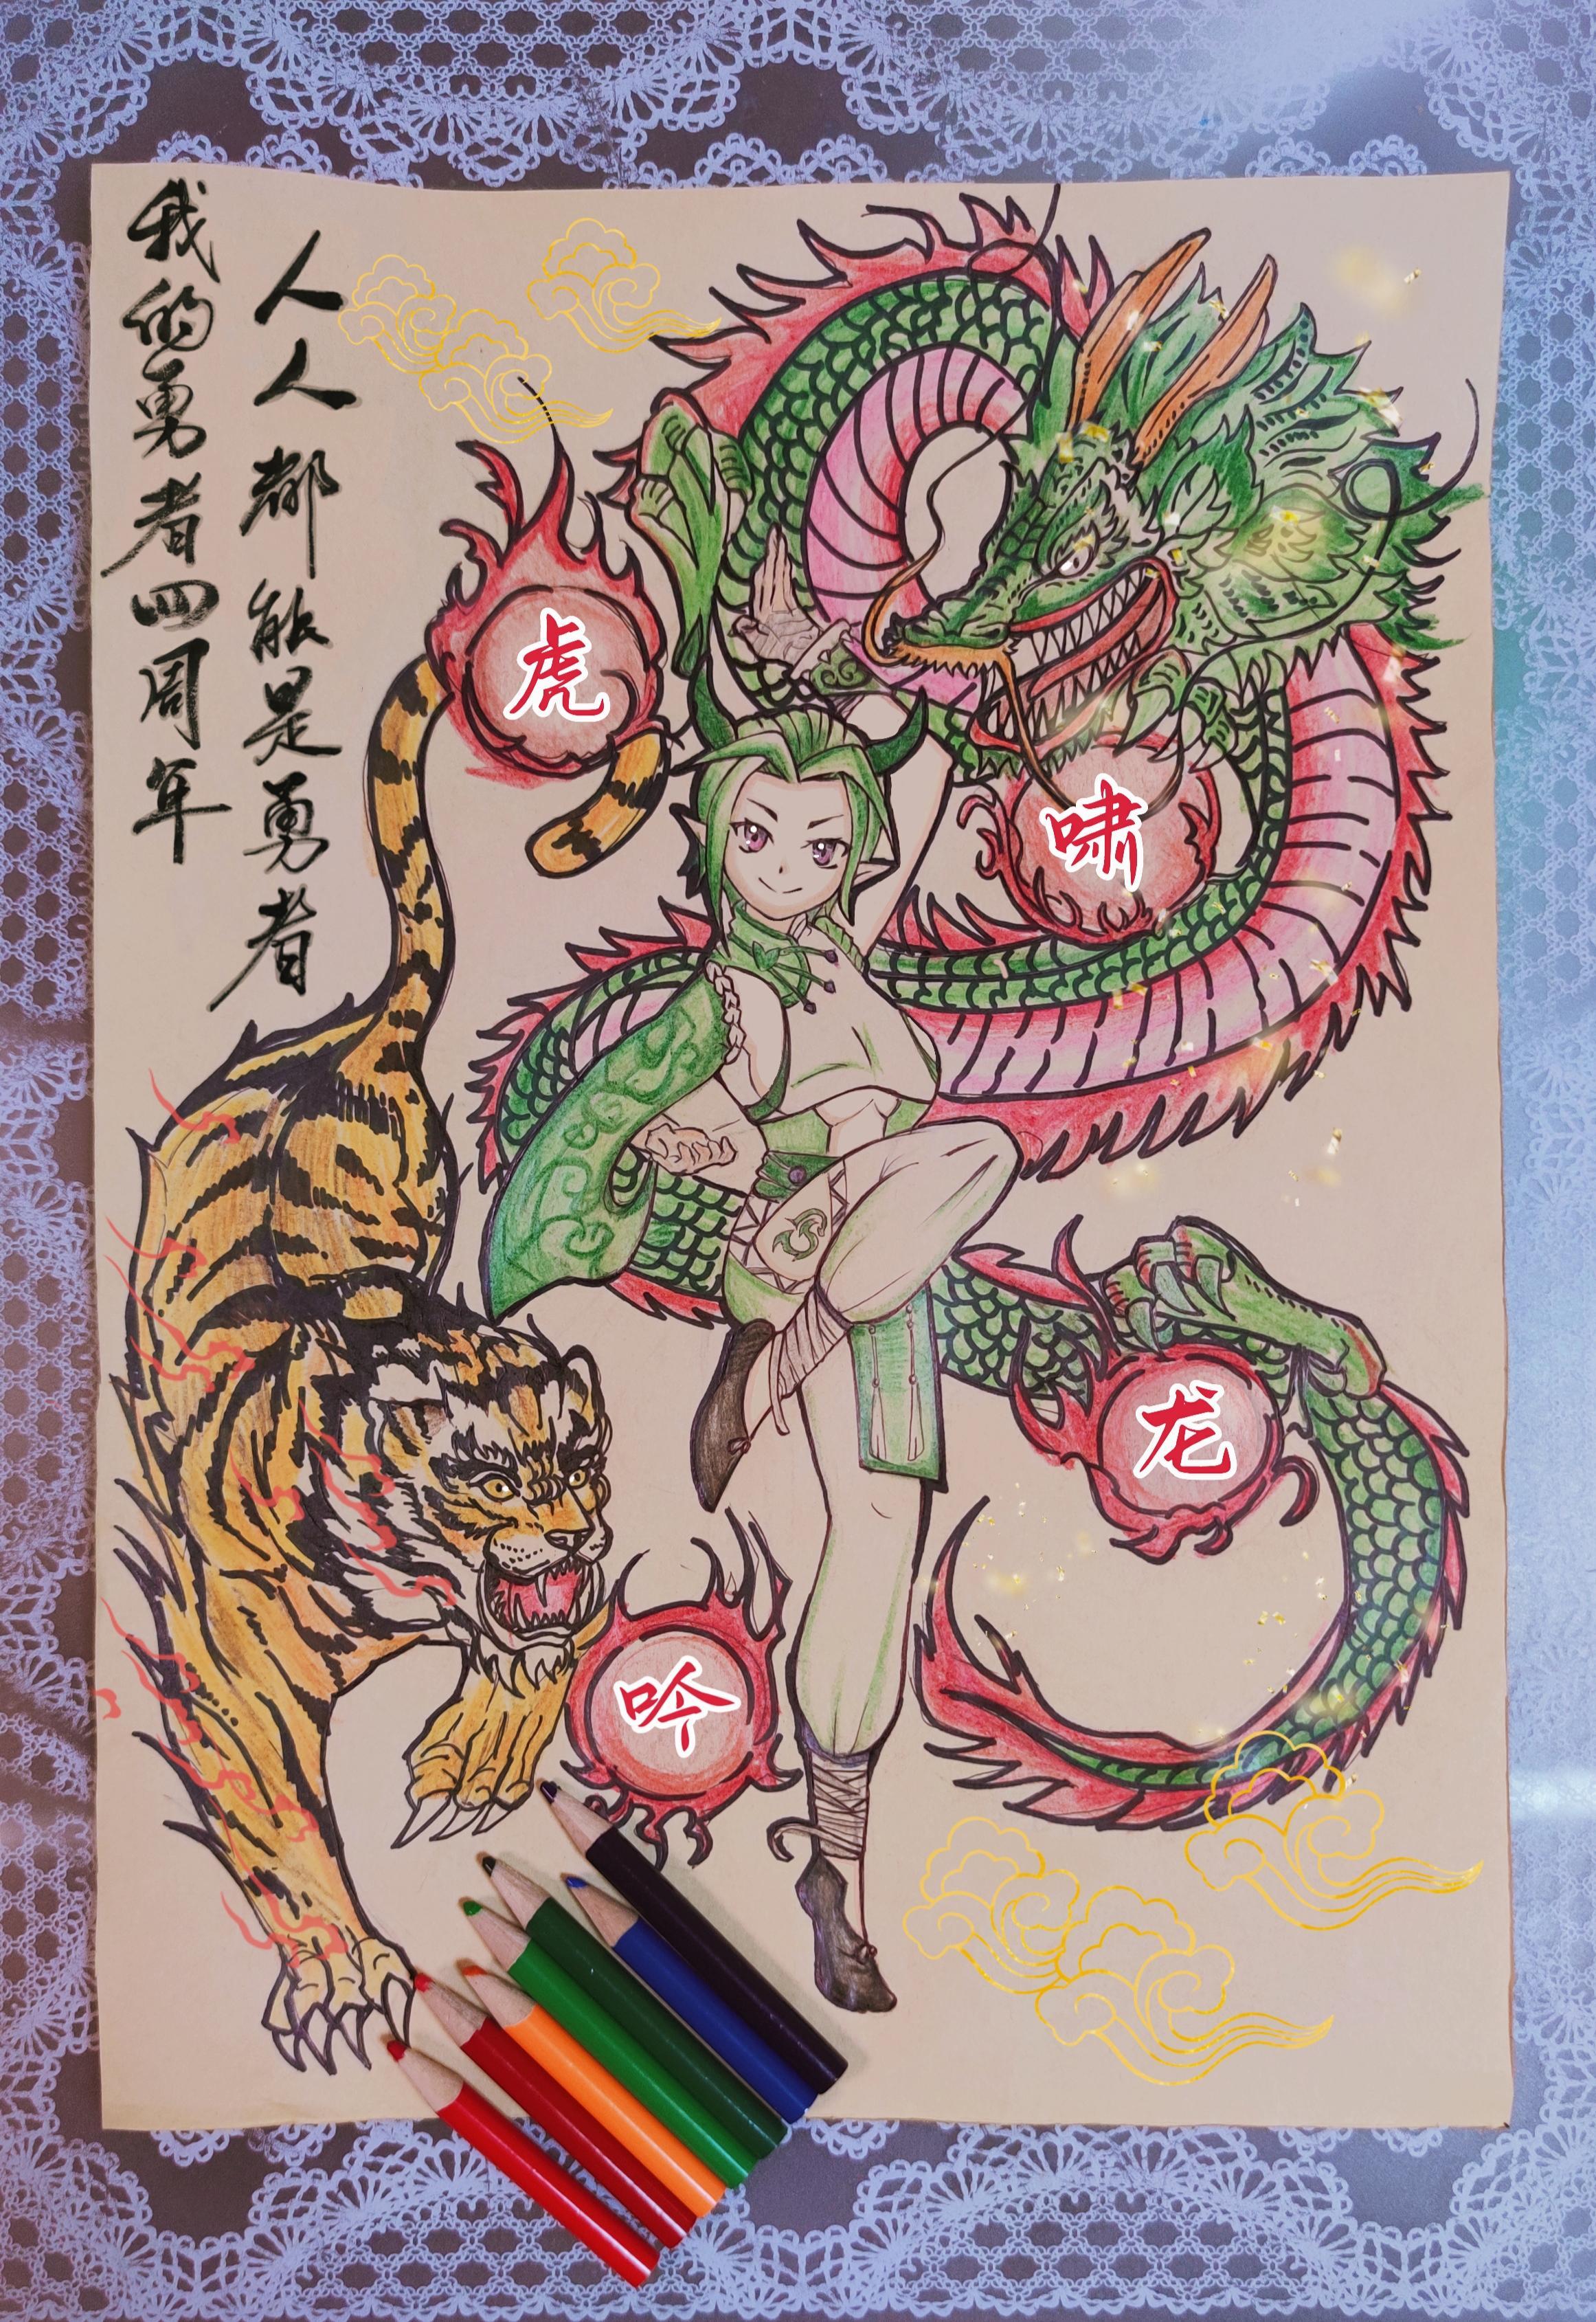 人人都能是勇者
我的勇者四周年
虎
啸
龙
吟